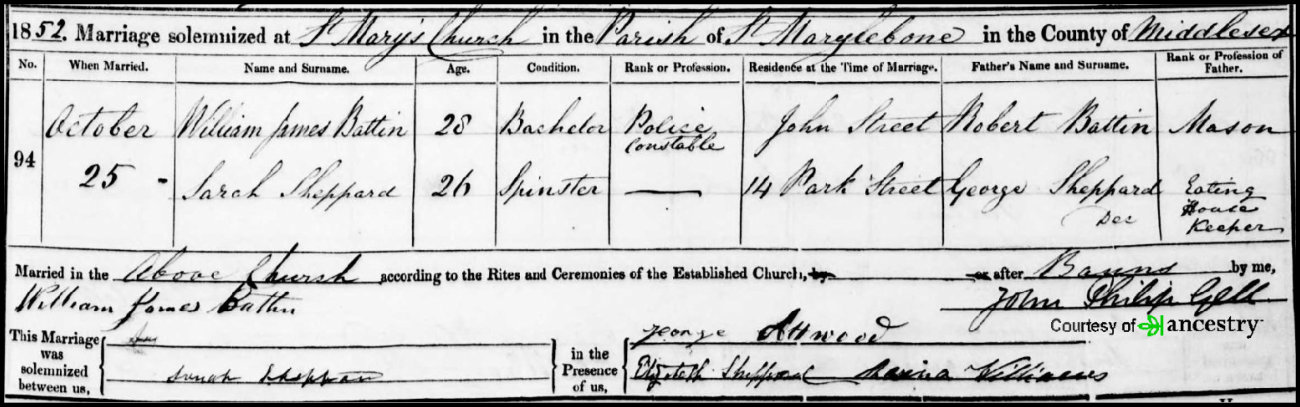 1852. Marriage solemnized at St Mary's Church in the Parish of St Marylebone in the County of Middlesex
No. When Married. Name and Surname. Age. Condition. Rank or Profession. Residence at the Time of Marriage. Father's Name and Surname. Rank or Profession of Father.
94 October 25 William James Battin 28 Bachelor Police Constable John Street Robert Battin Mason
Sarah Sheppard 26 Spinster — 14 Park Street George Sheppard Dec Eating House Keeper
Married in the Above Church according to the Rites and Ceremonies of the Established Church, by or after Banns by me,
William James Battin John Philip Gell
Courtesy of ancestry
This Marriage was solemnized between us, Sarah Sheppard in the Presence of us, George Attwood
Elizabeth Sheppard Williams